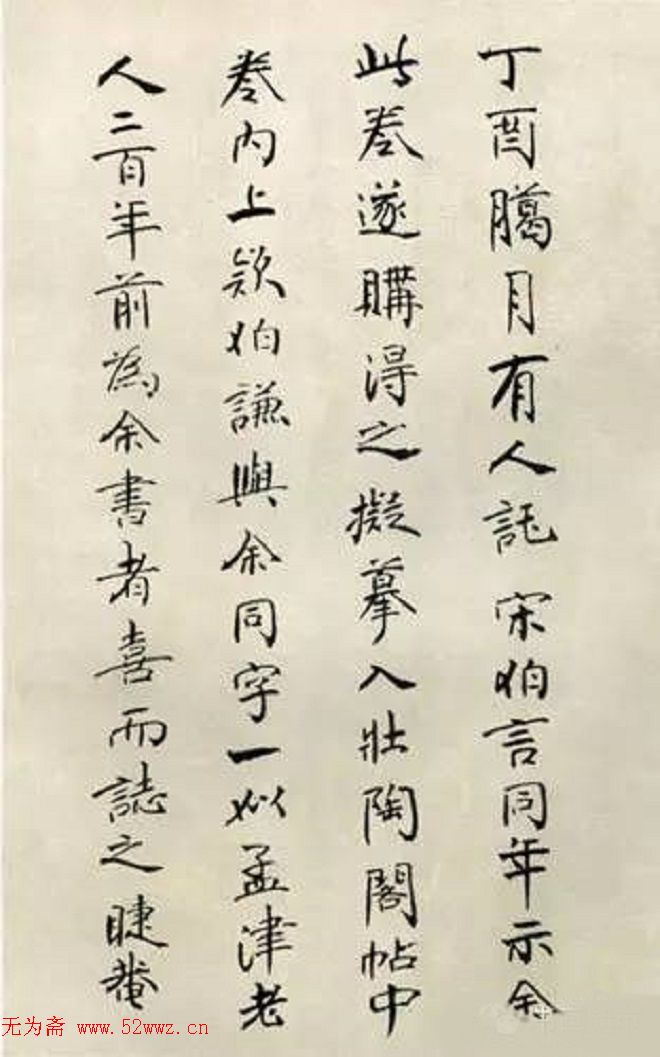 丁酉臈月有人託宋伯言同年示余
此卷遂購得之擬摹入壯陶閣帖中
卷內上款伯謙與余同字一似孟津老
人二百年前為余書者喜而誌之睫菴
无为斋 www.52wwz.cn